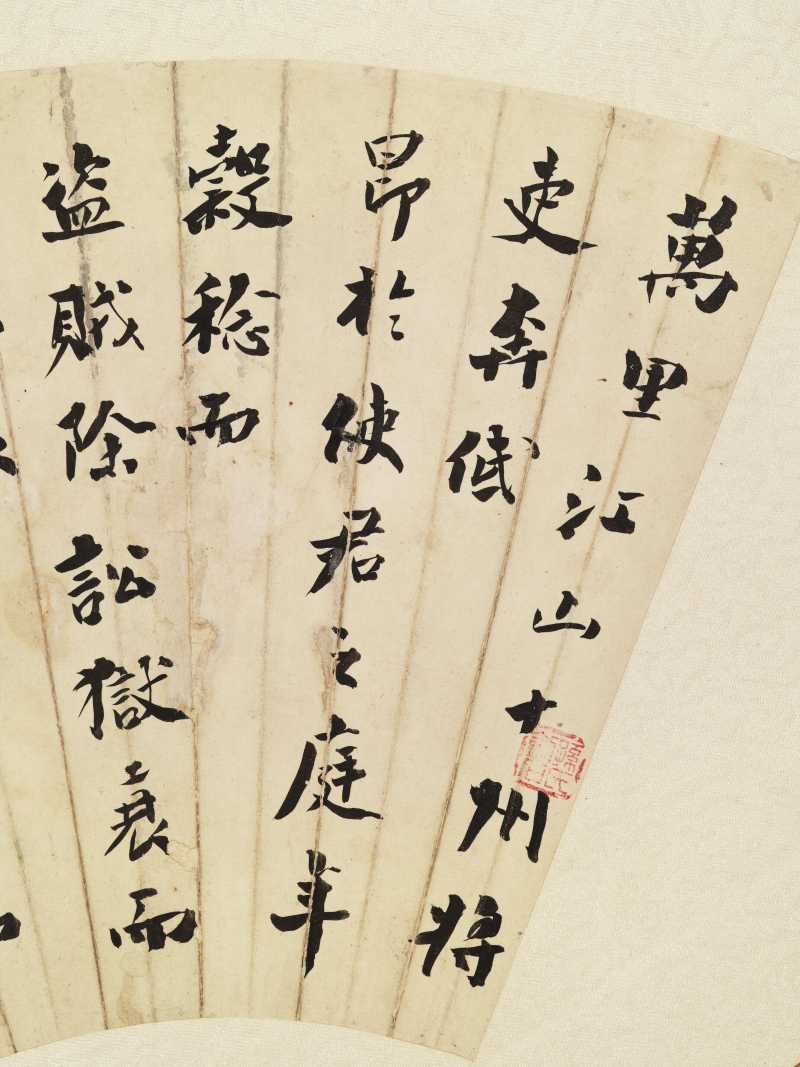 萬里江山十州將
吏奔低
昂於使君之庭年
穀稔而
盜賊除訟獄衰而